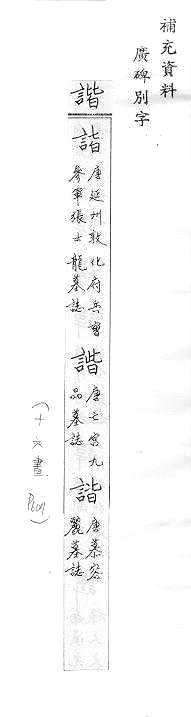 補充資料
廣碑別字
諧
諧
唐延州敦化府兵曹
參軍張士龍墓誌
諧
唐亡宮九
品墓誌
諧
唐慕容
麗墓誌
(十六畫)